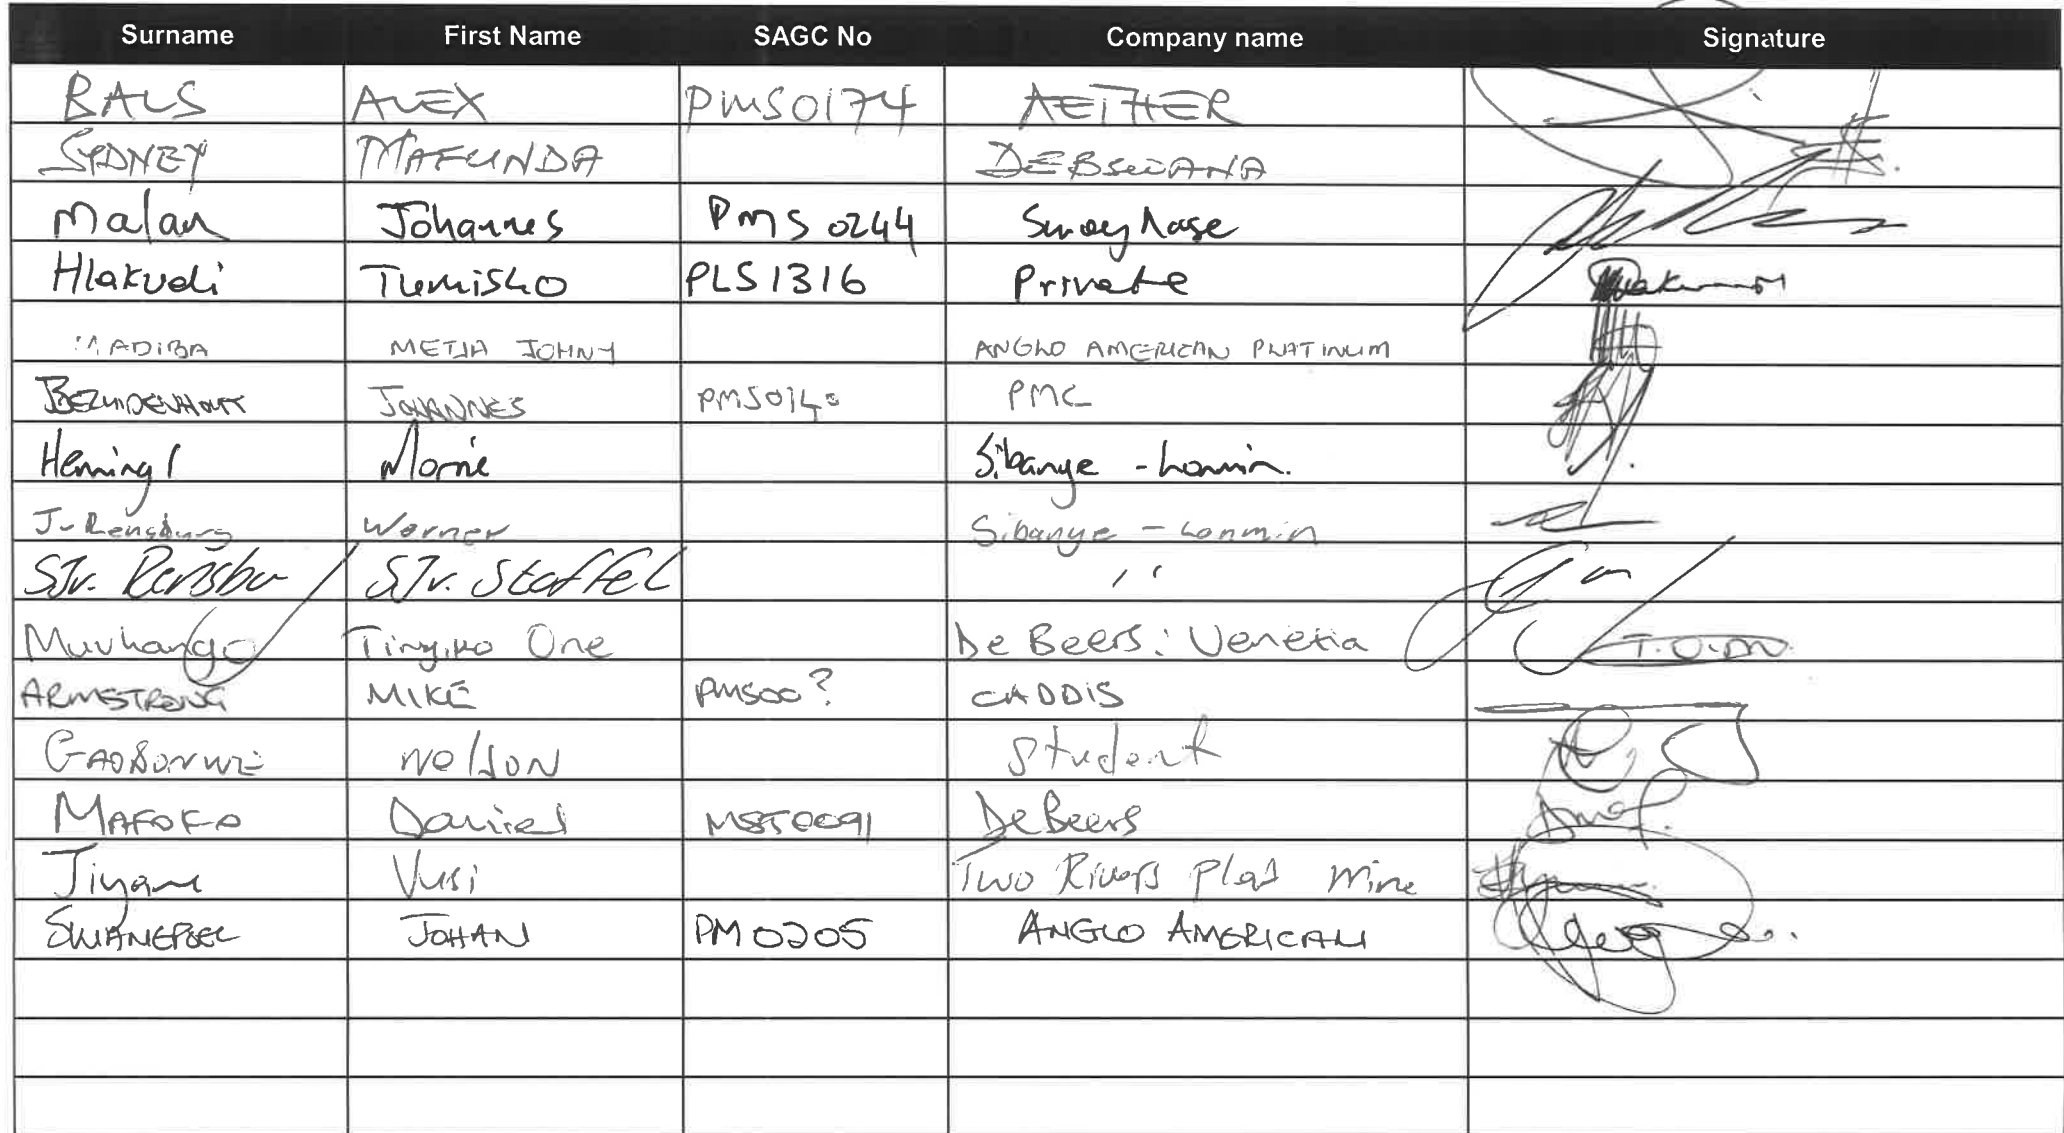 Surname First Name SAGC No Company name Signature
BALS ALEX PMS0174 AETHER
SYDNEY MAFUNDA DEBSWANA
Malan Johannes PMS 0244
Hlakudi Tumisho PLS1316 Private
MADIBA METJA JOHNY ANGLO AMERICAN PLATINUM
BEZUIDENHOUT JOHANNES PMS0140 PMC
Morné Sibanye - Lonmin.
J v Rensburg Werner Sibanye - Lonmin
SJv. Rensbu SJv. Staffel ''
Muvhango Tinyiko One De Beers: Venetia T.O.M.
ARMSTRONG MIKE PMS00? CADDIS
GAOBONWE NELSON Student
MAFOKO Daniel MST0091 De Beers
Jiyane Vusi Two Rivers Plat Mine
SWANEPOEL JOHAN PM0205 ANGLO AMERICAN